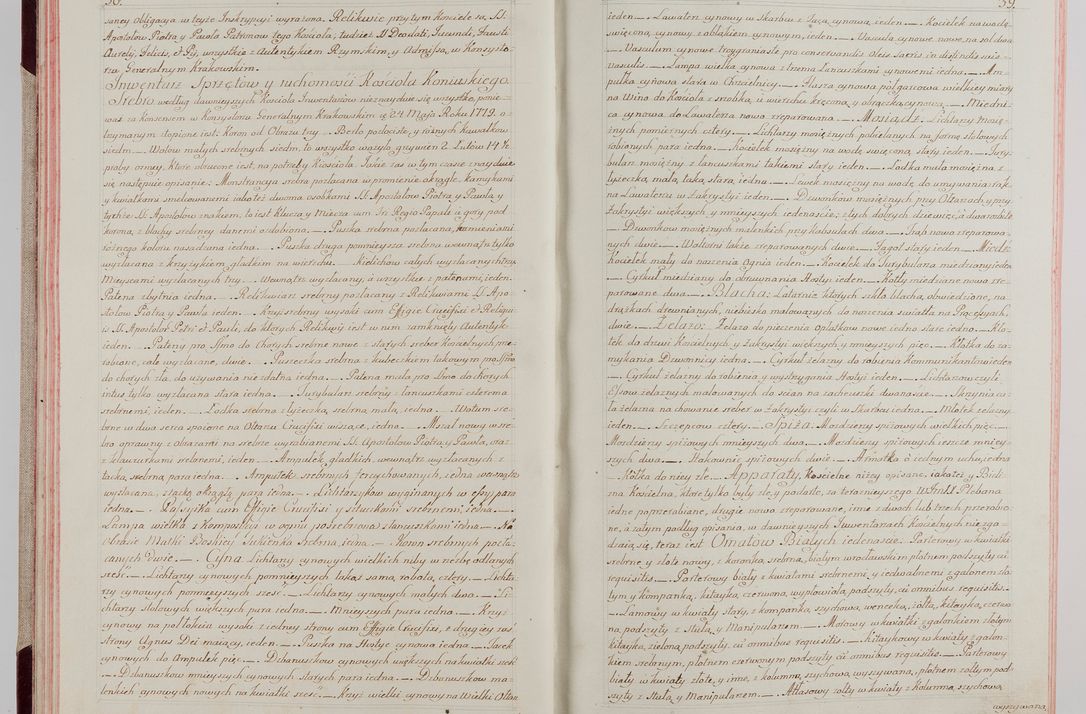 58.
saney Obligacya w teyże Inskrypcyi wyrażona. Relikwie przy tym Kosciele są, SS.
Apostołow Piotra y Pawła Patronow tego Kościoła, tudzież SS. Deodati, Jucundi, Fausti
Aurelij, Felicis, et Pij, wszystkie z Autentykiem Rzymskim, y Admissą, w Konsysto-
rzu Generalnym Krakowskim.
Inwentarz Sprzętow y ruchomości Kościoła Koniuskiego.
Srebro według dawnieyszych Kościoła Inwentarzow nieznayduie się wszystko, ponie-
waż za Konsensem w Konsystorzu Generalnym Krakowskim de 24. Maja Roku 1779. o-
trzymanym stopione iest: Koron od Obrazu trzy. — Berło pozłociste, y rożnych Kawałkow
siedm. — Wotow małych srebrnych siedm, to wszystko ważyło grzywien 2. Łutow 14 ½
proby
ktore obrucone iest na potrzeby Kościoła. Jakie zaś w tym czasie znayduie
się następuie opisanie: Monstrancya srebrna pozłacana w promienie okrągłe, kamykami
y kwiatkami smelcowanemi
dwoma osobkami SS. Apostołow Piotra, y Pawła, y
tychże SS. Apostołow znakiem, to iest Klucza y Miecza cum
Regio Papali u gory pod
koroną, z blachy srebrney danemi ozdobiona. — Puszka srebrna pozłacana, kamieniami
rożnego koloru nasadzana iedna. — Puszka druga pomnieysza srebrna, wewnątrz tylko
wyzłacana z krzyżykiem gładkim na wierzchu. — Kielichow całych wyzłacanych trzy.
Mieyscami wyzłacanych trzy. — Wewnątrz wyzłacany, i wszystkie z patenami, ieden.
Patena zbytnia iedna. — Relikwiarz srebrny pozłacany z Relikwiami SS. Apo-
stołow Piotra y Pawła ieden. — Krzyż srebrny wysoki cum Effigie Crucifixi et Reliqui-
is SS. Apostolor. Petri et Pauli, do ktorych Relikwij iest w nim zamknięty Autentyk
ieden. — Pateny pro SSmo do Chorych srebrne nowe z starych sreber Kościelnych prze-
robione, całe wyzłacane, dwie. — Puszeczka srebrna z kubeczkiem takowym pro SSmo
do chorych zła, do używania niezdatna iedna. — Patena mała pro SSmo do chorych
intus tylko wyzłacana stara iedna. — Turybularz srebrny z łancuszkami czterema
srebrnemi, ieden. — Łodka srebrna z łyżeczką srebrną małą, iedna. — Wotum sre-
brne w dwa serca spoione na Ołtarzu Crucifixi wiszące, iedno. — Mszał nowy w sre-
bro oprawny z Obrazami na srebrze wyrabianemi SS. Apostołow Piotra, y Pawła, oraz
z klauzurkami srebrnemi, ieden. — Ampułek gładkich wewnątrz wyzłacanych z
tacką srebrną para iedna. — Ampułek srebrnych
iedna wewnątrz
wyzłacana, z tacką okrągłą para iedna. — Lichtarzykow wyginanych w Essy para
iedna. — Pacyfikał cum Effigie Crucifixi y sztuczkami srebrnemi, ieden. —
Lampa wielka z kompozycyi
posrebrzana z łancuszkami iedna. — Na
Obrazie Matki Boskiey sukienka Srebrna, iedna. — Koron srebrnych pozła-
canych dwie. — Cyna. Lichtarzy cynowych wielkich niby w rzeźbę odlanych
szesc. — Lichtarzy cynowych pomnieyszych takąż samą robotą, cztery. — Lichta-
rzy cynowych pomnieyszych szesc. — Lichtarzy cynowych małych dwa. — Li-
chtarzy stołowych większych para iedna. — Mnieyszych para iedna. — Krzyż
cynowy na poł łokcia wysoki z iedney strony cum Effigie Crucifixi, z drugiey zaś
strony Agnus Dei maiący, ieden. — Puszka na Hostye cynowa iedna. — Tacek
cynowych do Ampułek pięc. — Dzbanuszkow cynowych większych na kwiatki szesc.
— Dzbanuszkow mnieyszych cynowych starych para iedna. — Dzbanuszkow ma-
lenkich cynowych nowych na kwiatki szesc. — Krzyż wielki cynowy na Wielki Ołtarz
59
ieden. — Lawaterz cynowy w Skarbcu z Tacą cynową, ieden. — Kociełek na wodę
swięconą cynowy z obłąkiem cynowym, ieden. — Vascula cynowe nowe, na sol dwa.
— Vasculum cynowe troygraniaste pro conservandis Oleis Sacris in distinctis suis
vasculis. — Lampa wielka cynowa z trzema Łancuszkami cynowemi iedna. — Am-
pułka cynowa stara w Chrcielnicy. — Flasza cynowa pułgarcowa wielkiey miary
na Wino do Kościoła z srobką, u wierzchu kręconą, y obrączką cynową. — Miedni-
ca cynowa do Lawaterza nowa zreparowana. — Mosiądz. Lichtarzy mosię-
żnych pomiernych cztery. — Lichtarzy mosiężnych pobielanych na formę stołowych
robionych, para iedna. — Kociełek mosiężny na wodę swięconą, stary ieden. — Tury-
bularz mosiężny z łancuszkami takiemi stary ieden. — Łodka mała mosiężna z
łyżeczką małą, taką, stara, iedna. — Lewek mosiężny na wodę do umywania rąk
na Lawaterzu w Zakrystyi ieden. — Dzwonkow mosiężnych przy Ołtarzach, y przy
Zakrystyi większych y mnieyszych iedenascie, złych, dobrych dziewięc, a dwa robotę
— Dzwonkow mosiężnych malenkich przy Kabzulach dwa. — Trąb nowo zreparowa-
nych dwie. — Waltorni także zreparowanych dwie. — Fagot stary ieden. — Miedź:
kociełek mały do noszenia Ognia ieden. — Kociełek do Turybularza miedziany ieden
— Cyrkuł miedziany do obrzynania Hostyi ieden. — Kotły miedziane nowo zre-
parowane dwa. — Blacha: Latarnie, ktorych szkła blachą obwiedzione, na
drążkach drewnianych, niebiesko malowanych do noszenia swiatła na Processyach,
dwie. — Żelazo: Żelazo do pieczenia Opłatkow nowe iedno stare iedno. — Kło-
tek do drzwi Kościelnych, y Zakrystyi większych y mnieyszych pięc. — Kłotka do za-
mykania Dzwonnicy iedna. — Cyrkuł żelazny do robienia Kommunikantow ieden
— Cyrkuł żelazny do robienia y wystrzygania Hostyi ieden. — Lichtarzow czyli
Essow żelaznych malowanych do scian na zacheuszki dwanascie. — Skrzynia ca-
ła żelazna na chowanie sreber w Zakrystyi czyli w Skarbcu iedna. — Młotek żelazny
ieden. — Szczepcow cztery. — Spiża. Mozdzierzy spiżowych wielkich pięc. —
Mozdzierzy spiżowych mnieyszych dwa. — Mozdzierzy spiżowych ieszcze mniey-
szych dwa. — Hakownic spiżowych dwie. — Armatka o iednym uchu, iedna
— Kołka do niey złe. — Apparaty, Kościelne niżey opisane, iakoteż y Bieli-
zna Kościelna, ktore tylko były złe, y podarte, za teraznieyszego WImX Plebana
iedne poprzerabiane, drugie nowo zreparowane, inne z dwoch lub trzech przerobio-
ne, a zatym podług opisania w dawnieyszych Inwentarzach Kościelnych nie zga-
dzają się, teraz iest Ornatow Białych iedenascie. Parterowy w kwiatki
srebrne, y złote nowy, z koronką srebrną białym wrocławskim płotnem podszyty, cū
requisitis. — Parterowy biały z kwiatami srebrnemi, y iedwabnemi z galonem zło-
tym y Kompanką, kitayką czerwoną, wypłowiałą podszyty, cū omnibus requisitis.
— Lamowy w kwiaty stary, z kompanką szychową, weneckà, żołtą kitayką, czerwo
na podszyty z Stułą, y Manipularzem. — Morowy w kwiatki z galonkiem złotym
kitayką zieloną podszyty, cū omnibus requisitis. — Kitaykowy w kwiaty z galon-
kiem srebrnym, płotnem czerwonym podszyty cū omnibus requisitis. — Parterowy
biały w kwiaty złote, y inne, z kolumną szychową, wyszywaną, płotnem żołtym pod-
szyty z Stułą, y Manipularzem. — Atłasowy żołty w kwiaty z Kolumną szychową
wyszywaną